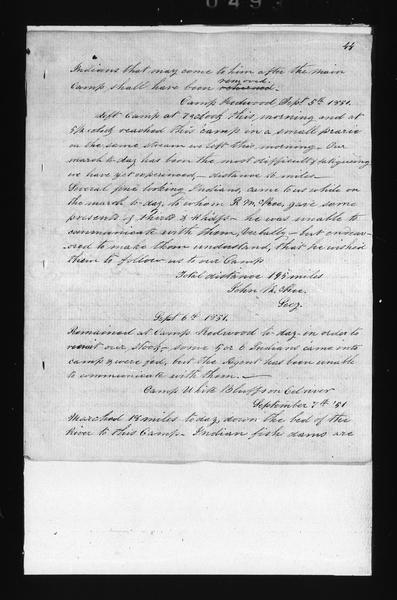 049
44
Indians that may come to him after the main
removed.
Camp shall have been returned.
Camp Redwood Sept 5th 1851.
Left Camp at 7 oclock this morning and at
5 oclock reached this camp in a small prarie
on the same stream we left this morning - Our
march to day has been the most difficult & fatiguing
we have yet experienced, - distance 16 miles -
Several fine looking Indians, came to us while on
the march to day, to whom R. McKee, gave some
presents of shirts & Hdkfs - he was unable to
communicate with them, Verbally, - but endeav-
ored to make them understand, that he wished
them to follow us to our Camp
Total distance 195 miles
John McKee.
Secy.
Sept 6th 1851.
Remained at Camp Redwood to day in order to
recruit our Stock, - some 5 or 6 Indians came into
camp & were fed, but the Agent has been unable
to communicate with them. -
Camp White Bluff on Eel river
September 7th '51
Marched 18 miles today, down the bed of the
River to this Camp - Indian fish dams are